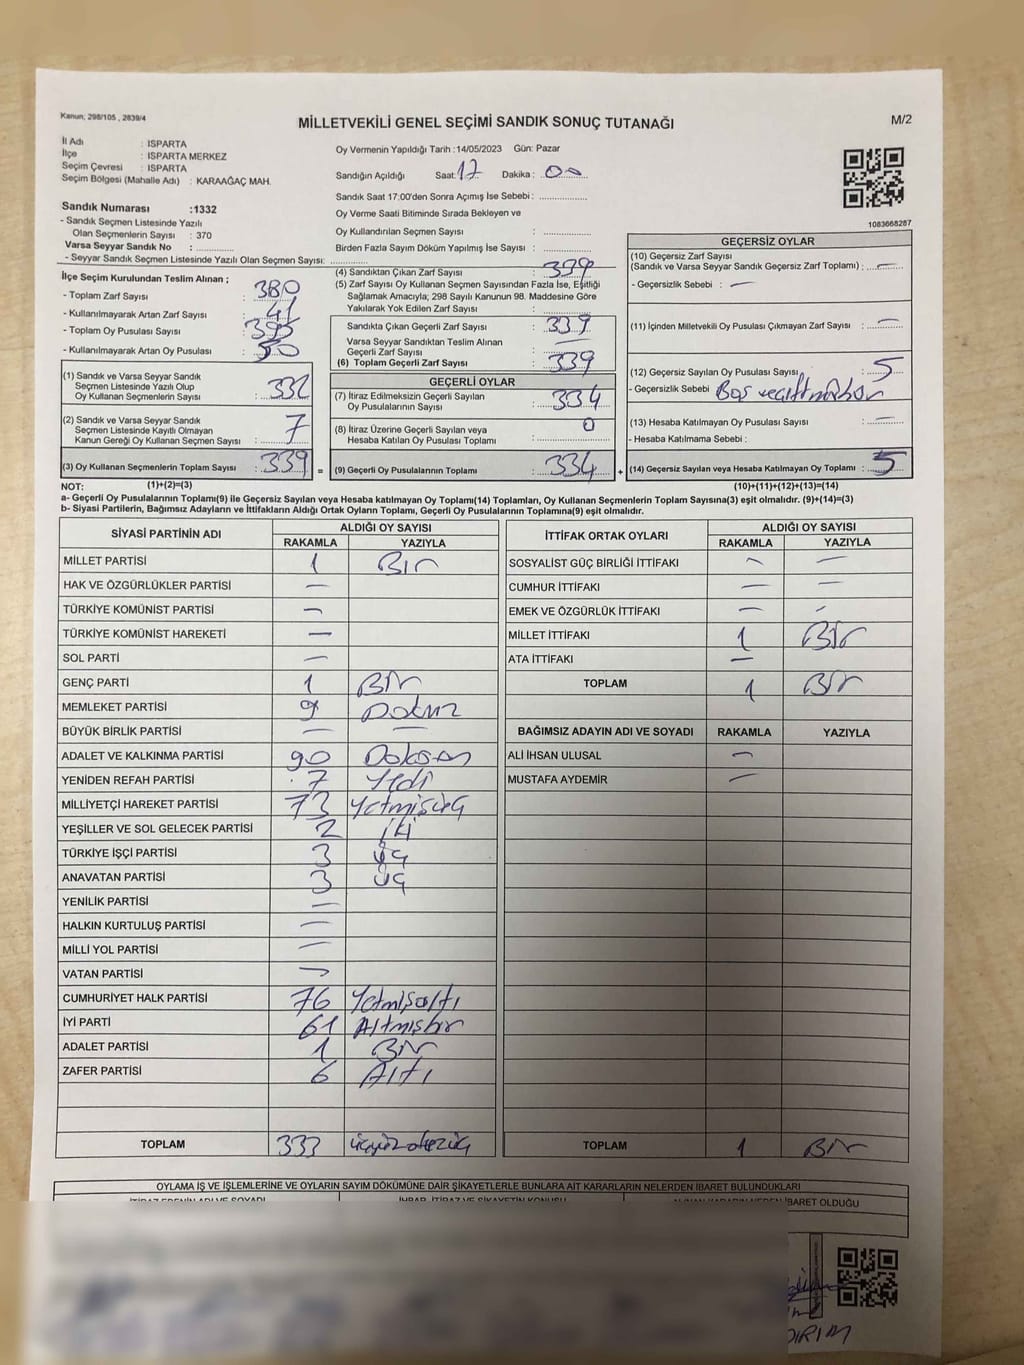 Kanun; 298/105 , 2839/4
MİLLETVEKİLİ GENEL SEÇİMİ SANDIK SONUÇ TUTANAĞI
M/2
İl Adı : ISPARTA
İlçe : ISPARTA MERKEZ
Seçim Çevresi : ISPARTA
Seçim Bölgesi (Mahalle Adı) : KARAAĞAÇ MAH.
Sandık Numarası :1332
- Sandık Seçmen Listesinde Yazılı
Olan Seçmenlerin Sayısı : 370
Varsa Seyyar Sandık No :
- Seyyar Sandık Seçmen Listesinde Yazılı Olan Seçmen Sayısı:
Oy Vermenin Yapıldığı Tarih :14/05/2023 Gün: Pazar
Sandığın Açıldığı Saat: 17 Dakika : 00
Sandık Saat 17:00'den Sonra Açımış İse Sebebi :
Oy Verme Saati Bitiminde Sırada Bekleyen ve
Oy Kullandırılan Seçmen Sayısı :
Birden Fazla Sayım Döküm Yapılmış İse Sayısı :
1083668287
İlçe Seçim Kurulundan Teslim Alınan ;
- Toplam Zarf Sayısı : 380
- Kullanılmayarak Artan Zarf Sayısı : 41
- Toplam Oy Pusulası Sayısı : 395
- Kullanılmayarak Artan Oy Pusulası : 50
(1) Sandık ve Varsa Seyyar Sandık
Seçmen Listesinde Yazılı Olup
Oy Kullanan Seçmenlerin Sayısı : 332
(2) Sandık ve Varsa Seyyar Sandık
Seçmen Listesinde Kayıtlı Olmayan
Kanun Gereği Oy Kullanan Seçmen Sayısı : 7
(3) Oy Kullanan Seçmenlerin Toplam Sayısı : 339 =
(4) Sandıktan Çıkan Zarf Sayısı : 339
(5) Zarf Sayısı Oy Kullanan Seçmen Sayısından Fazla İse, Eşitliği
Sağlamak Amacıyla; 298 Sayılı Kanunun 98. Maddesine Göre
Yakılarak Yok Edilen Zarf Sayısı :
Sandıkta Çıkan Geçerli Zarf Sayısı : 339
Varsa Seyyar Sandıktan Teslim Alınan
Geçerli Zarf Sayısı : —
(6) Toplam Geçerli Zarf Sayısı : 339
GEÇERLİ OYLAR
(7) İtiraz Edilmeksizin Geçerli Sayılan
Oy Pusulalarının Sayısı : 334
(8) İtiraz Üzerine Geçerli Sayılan veya
Hesaba Katılan Oy Pusulası Toplamı : 0
(9) Geçerli Oy Pusulalarının Toplamı : 334 +
GEÇERSİZ OYLAR
(10) Geçersiz Zarf Sayısı
(Sandık ve Varsa Seyyar Sandık Geçersiz Zarf Toplamı) : —
- Geçersizlik Sebebi : —
(11) İçinden Milletvekili Oy Pusulası Çıkmayan Zarf Sayısı : —
(12) Geçersiz Sayılan Oy Pusulası Sayısı : 5
- Geçersizlik Sebebi : Boş ve
(13) Hesaba Katılmayan Oy Pusulası Sayısı :
- Hesaba Katılmama Sebebi :
(14) Geçersiz Sayılan veya Hesaba Katılmayan Oy Toplamı : 5
NOT: (1)+(2)=(3) (10)+(11)+(12)+(13)=(14)
a- Geçerli Oy Pusulalarının Toplamı(9) ile Geçersiz Sayılan veya Hesaba katılmayan Oy Toplamı(14) Toplamları, Oy Kullanan Seçmenlerin Toplam Sayısına(3) eşit olmalıdır. (9)+(14)=(3)
b- Siyasi Partilerin, Bağımsız Adayların ve İttifakların Aldığı Ortak Oyların Toplamı, Geçerli Oy Pusulalarının Toplamına(9) eşit olmalıdır.
SİYASİ PARTİNİN ADI ALDIĞI OY SAYISI
RAKAMLA YAZIYLA
MİLLET PARTİSİ 1 Bir
HAK VE ÖZGÜRLÜKLER PARTİSİ —
TÜRKİYE KOMÜNİST PARTİSİ —
TÜRKİYE KOMÜNİST HAREKETİ —
SOL PARTİ —
GENÇ PARTİ 1 Bir
MEMLEKET PARTİSİ 9 Dokuz
BÜYÜK BİRLİK PARTİSİ — —
ADALET VE KALKINMA PARTİSİ 90 Doksan
YENİDEN REFAH PARTİSİ 7 Yedi
MİLLİYETÇİ HAREKET PARTİSİ 73 Yetmişüç
YEŞİLLER VE SOL GELECEK PARTİSİ 2 iki
TÜRKİYE İŞÇİ PARTİSİ 3 üç
ANAVATAN PARTİSİ 3 üç
YENİLİK PARTİSİ —
HALKIN KURTULUŞ PARTİSİ —
MİLLİ YOL PARTİSİ —
VATAN PARTİSİ —
CUMHURİYET HALK PARTİSİ 76 Yetmişaltı
İYİ PARTİ 61 Altmışbir
ADALET PARTİSİ 1 Bir
ZAFER PARTİSİ 6 Altı
TOPLAM 333 üçyüzotuzüç
İTTİFAK ORTAK OYLARI ALDIĞI OY SAYISI
RAKAMLA YAZIYLA
SOSYALİST GÜÇ BİRLİĞİ İTTİFAKI — —
CUMHUR İTTİFAKI — —
EMEK VE ÖZGÜRLÜK İTTİFAKI — —
MİLLET İTTİFAKI 1 Bir
ATA İTTİFAKI —
TOPLAM 1 Bir
BAĞIMSIZ ADAYIN ADI VE SOYADI RAKAMLA YAZIYLA
ALİ İHSAN ULUSAL —
MUSTAFA AYDEMİR —
TOPLAM 1 Bir
OYLAMA İŞ VE İŞLEMLERİNE VE OYLARIN SAYIM DÖKÜMÜNE DAİR ŞİKAYETLERLE BUNLARA AİT KARARLARIN NELERDEN İBARET BULUNDUKLARI
İTİRAZ EDENİN ADI VE SOYADI İHBAR, İTİRAZ VE ŞİKAYETİN KONUSU İBARET OLDUĞU